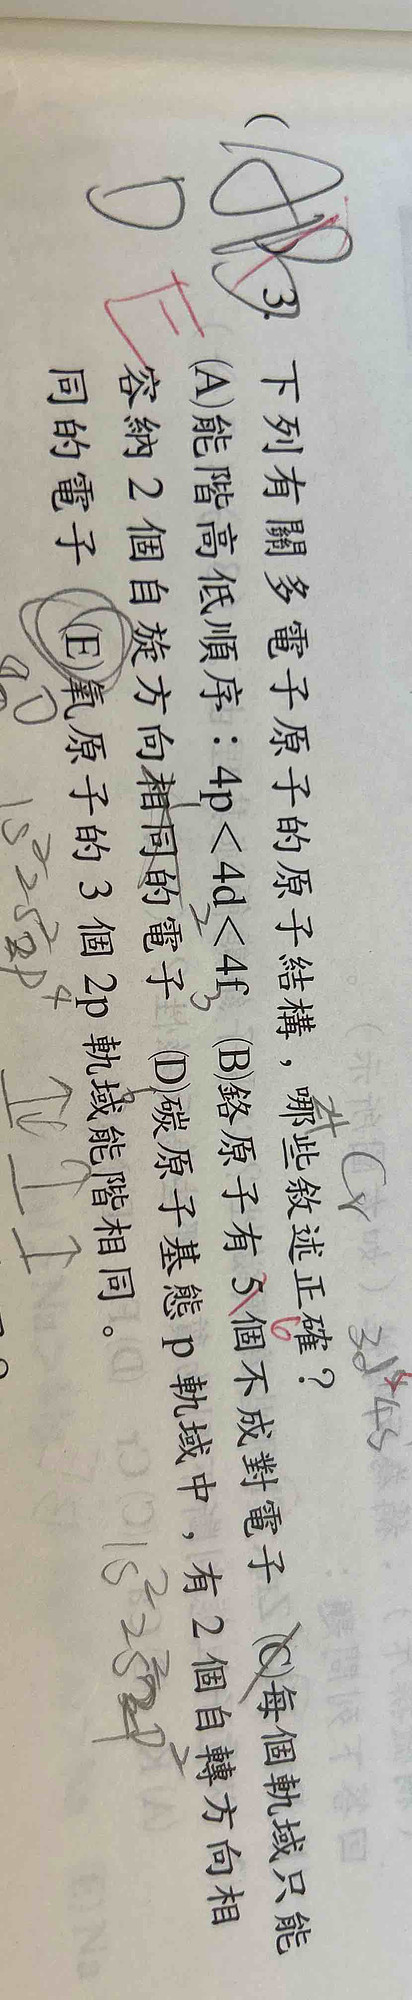 3. 下列有關多電子原子的原子結構，哪些敘述正確？
(A)能階高低順序：4p＜4d＜4f (B)鉻原子有5個不成對電子 (C)每個軌域只能
容納2個自旋方向相同的電子 (D)碳原子基態p軌域中，有2個自轉方向相
同的電子 (E)氧原子的3個2p軌域能階相同。
D E
24Cr
6
1 2 3
1s²2s²2p²
8O 1s²2s²2p⁴